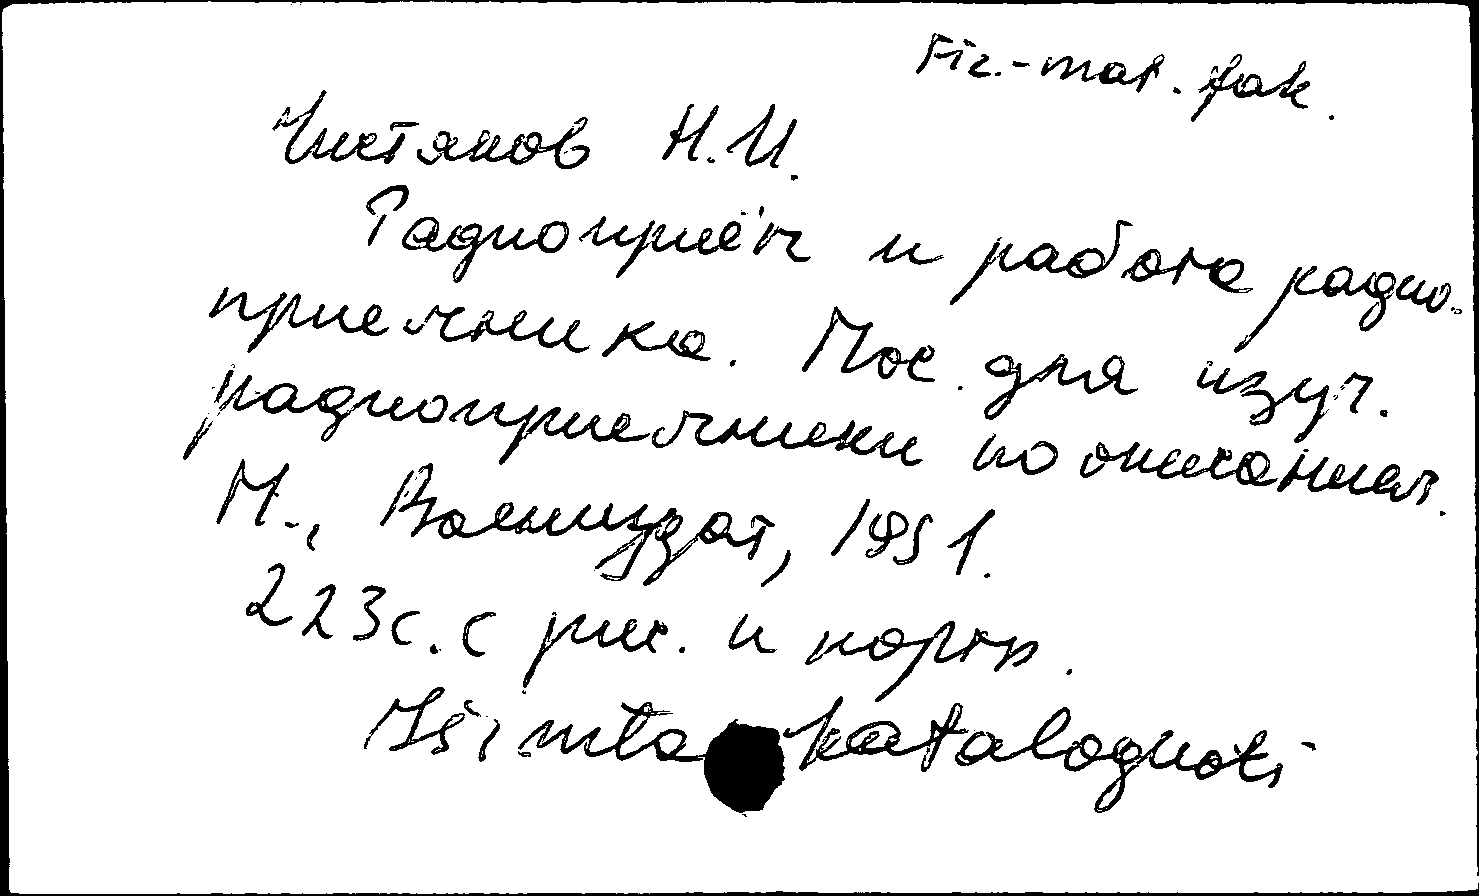 Fiz.-mat. fak.
Чистяков Н.И.
Радиоприём и работа радио-
приемника. Пос. для изуч.
радиоприемники по описаниям.
М., Воениздат, 1951.
223с. с рис. и портр.
Išimta kataloguoti